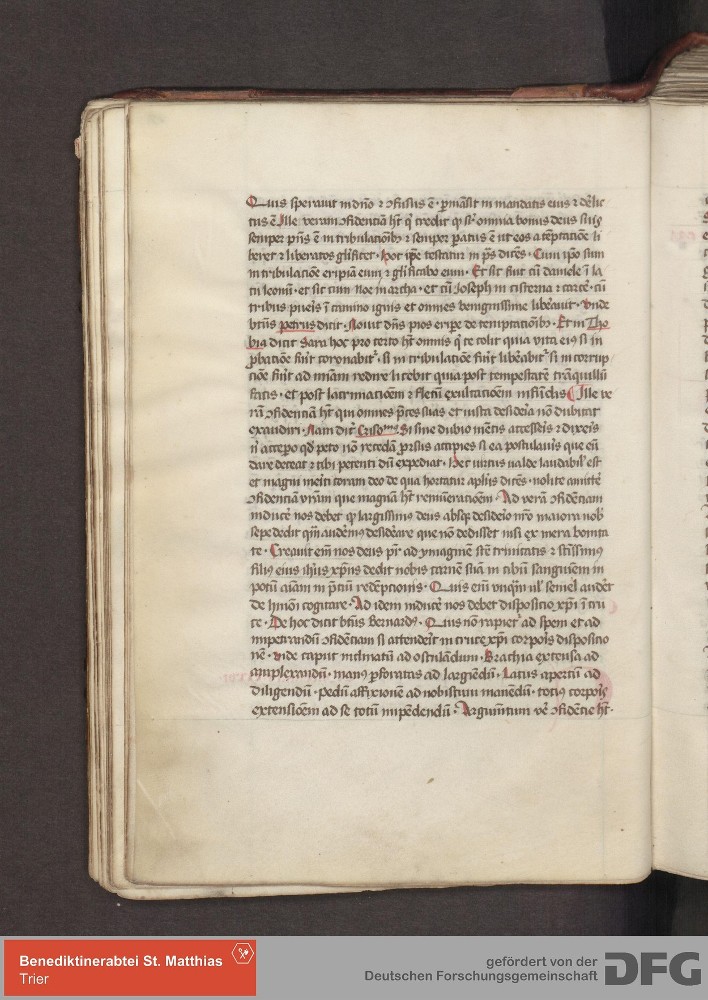 Quis sperauit in dño ⁊ ꝯfusus ē · ꝑmāsit in mandatis eius ⁊ derelic
tus ē Ille veram ꝯfidentiā hꝫ qͥ credit qꝫ sꝫ omnia bonus deus suis
semper pñs ē in tribulacōibꝫ ⁊ semper paratus ē ut eos a tēptacōe li
beret ⁊ liberatos glīficet · Hoc ipē testatur in pˢ dicēs · Cum ipō sum
in tribulacōe eripiā eum ⁊ glīficabo eum · Et sic fuit cū daniele ī la
cu leonū · et sic cum Noe in archa · et cū Joseph in cisterna ⁊ carcē · cū
tribus pueris ī camino ignis et omnes benignissime libauit · vnde
btūs petrus dicit · Nouit dñs pios eripe de temptacōibꝫ · Et in Tho
bia dicit Sara hoc pro certo hꝫ omnis qͥ te colit quia vita eiꝰ si in
ꝓbacōe fūit coronabit᷑ · si in tribulacōe fūit libabit᷑ si in corrup
cōe fūit ad mīam redire licebit quia post tempestatē trāquillū
facis · et post lacrimacōem ⁊ fletū exultacōem infūdis Ille ve
rā ꝯfidenciā hꝫ qui omnes p̄ces suas et iusta desidia nō dubitat
exaudiri · Nam dic̄ Crisoᵐᵘˢ Si sine dubio mētis accesseris ⁊ dixeris
nͥ accepo qd̄ peto nō recedā ꝓrsus accipies si ea postulauis que eū
dare deceat ⁊ tibi petenti dūi expediat · Hec virtus valde laudabilꝭ est
et magni meīti coram deo de qua hortatur aplūs dicēs · nolite amittē
ꝯfidenciā vrām que magnā hꝫ remūeracōem · Ad verā ꝯfidenciam
inducē nos debet qꝫ largissimꝰ deus absqꝫ desideīo nr̄o maiora nob̄
sepe dedit qm̄ audēmꝰ desidēare que non dedisset nisi ex mera bonita
te · Creauit em̄ nos deus pr̄ ad ymaginē scē trinitatis ⁊ sc̄issimꝰ
filiꝰ eius ihūs xp̄us dedit nobis carnē suā in cibū sanguinem in
potū aīam in p̄ciū redēpcionis · Quis em̄ vnqm̄ ul̄ semel audēt
de hmōi cogitare · Ad idem inducē nos debet disposicio xp̄i ī cru
ce · De hoc dicit btūs Bernardꝰ · Quis nō rapiet᷑ ad spem et ad
impetrandū ꝯfidenciam si attendeīt in cruce xp̄i corpoīs disposicio
nē · vnde caput inclinatū ad osculādum · Brachia extensa ad
amplexandū · manꝰ ꝑforatas ad largiēdū · Latus apertū ad
diligendū · pedū affixionē ad nobiscum manēdū · totiꝰ corpoīs
extensiōem ad se totū impēdendū · Argumētum vē ꝯfidencie hꝫ ·
Benediktinerabtei St. Matthias
Trier
gefördert von der
Deutschen Forschungsgemeinschaft
DFG